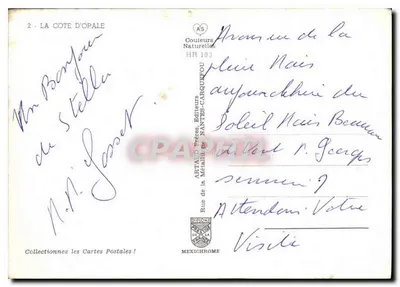 2 - LA COTE D'OPALE
Un Bonjour
de Stella
M. M. Gosset
Collectionnez les Cartes Postales !
AS
Couleurs
Naturelles
HB 103
ARTAUD Frères, Editeurs
Rue de la Métallurgie NANTES-CARQUEFOU
MEXICHROME
CPAREMA
Avons eu de la
pluie Mais
aujourd'hui du
Soleil Mais Beaucoup
de Vent
Attendons Votre
Visite